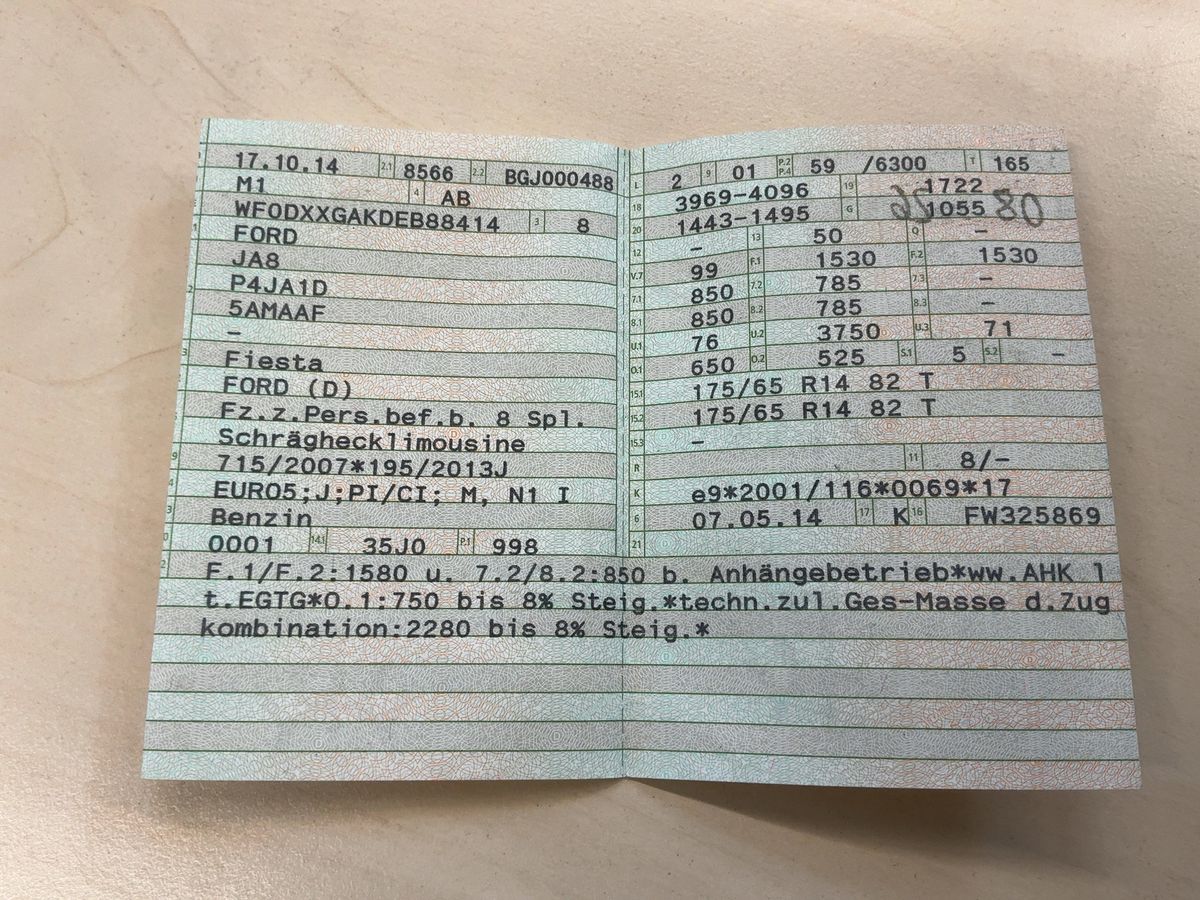 17.10.14 2.1 8566 2.2 BGJ000488
M1 4 AB
WF0DXXGAKDEB88414 3 8
FORD
JA8
P4JA1D
5AMAAF
–
Fiesta
FORD (D)
Fz.z.Pers.bef.b. 8 Spl.
Schräghecklimousine
715/2007*195/2013J
EURO5;J;PI/CI; M, N1 I
Benzin
0001 14.1 35J0 P.1 998
L 2 9 01 P.2 P.4 59 /6300 T 165
18 3969-4096 19 1722
20 1443-1495 G 1055
12 – 13 50 Q –
V.7 99 F.1 1530 F.2 1530
7.1 850 7.2 785 7.3 –
8.1 850 8.2 785 8.3 –
U.1 76 U.2 3750 U.3 71
O.1 650 O.2 525 S.1 5 S.2 –
15.1 175/65 R14 82 T
15.2 175/65 R14 82 T
15.3 –
R 11 8/–
K e9*2001/116*0069*17
6 07.05.14 17 K 16 FW325869
21
F.1/F.2:1580 u. 7.2/8.2:850 b. Anhängebetrieb*ww.AHK l
t.EGTG*O.1:750 bis 8% Steig.*techn.zul.Ges-Masse d.Zug
kombination:2280 bis 8% Steig.*